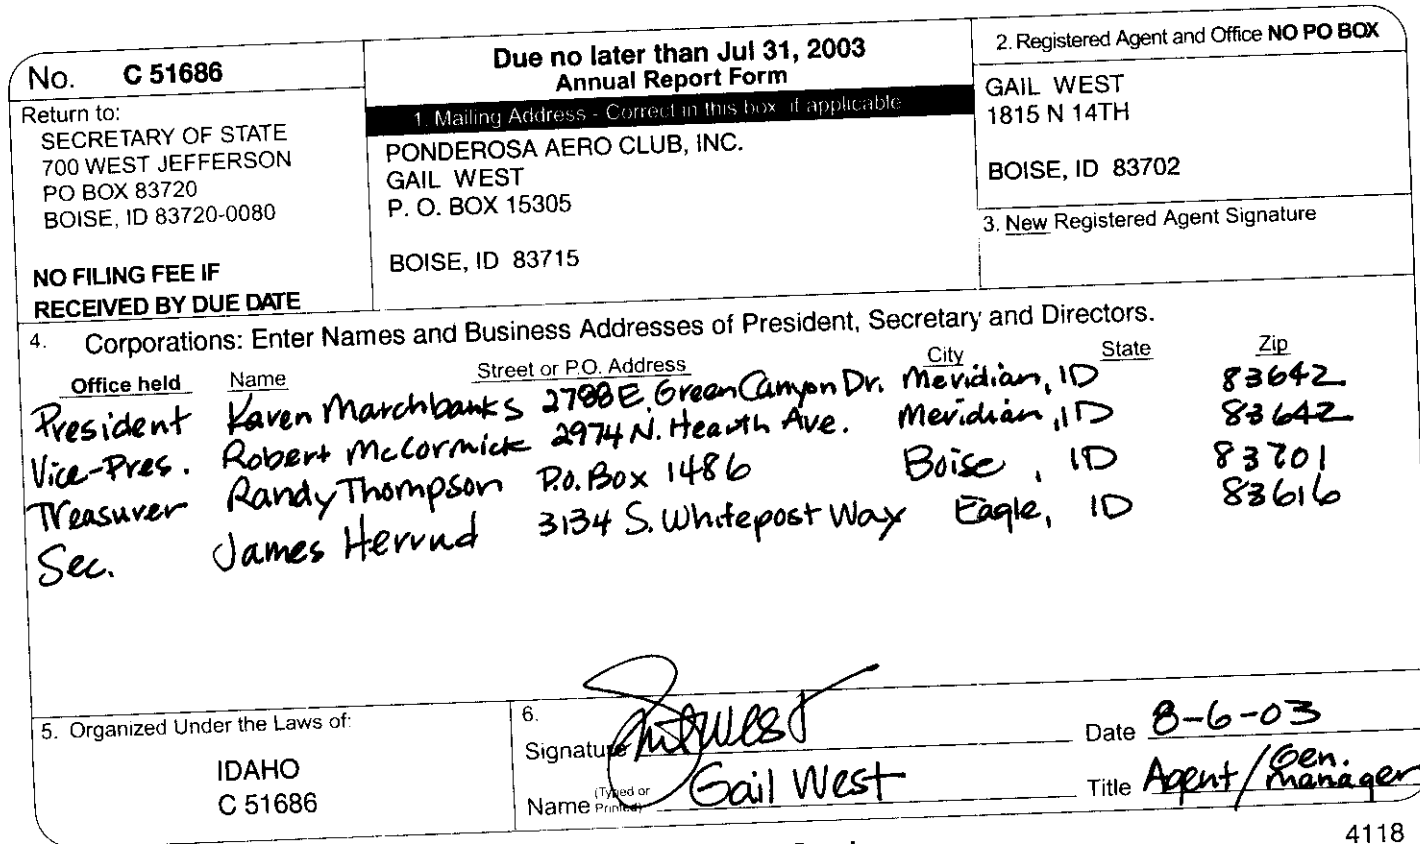 No. C 51686
Return to:
SECRETARY OF STATE
700 WEST JEFFERSON
PO BOX 83720
BOISE, ID 83720-0080
NO FILING FEE IF
RECEIVED BY DUE DATE
Due no later than Jul 31, 2003
Annual Report Form
1. Mailing Address - Correct in this box if applicable
PONDEROSA AERO CLUB, INC.
GAIL WEST
P. O. BOX 15305
BOISE, ID 83715
2. Registered Agent and Office NO PO BOX
GAIL WEST
1815 N 14TH
BOISE, ID 83702
3. New Registered Agent Signature
4. Corporations: Enter Names and Business Addresses of President, Secretary and Directors.
Office held Name Street or P.O. Address City State Zip
President Karen Marchbanks 2788 E. Green Canyon Dr. Meridian, ID 83642
Vice-Pres. Robert McCormick 2974 N. Hearth Ave. Meridian, ID 83642
Treasurer Randy Thompson P.O. Box 1486 Boise, ID 83701
Sec. James Herrud 3134 S. Whitepost Way Eagle, ID 83616
5. Organized Under the Laws of:
IDAHO
C 51686
6.
Signature West Date 8-6-03
Name (Typed or Printed) Gail West Title Agent/Gen. manager
4118